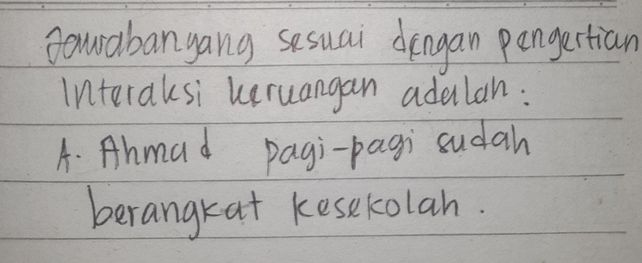 Jawaban yang sesuai dengan pengertian
Interaksi keruangan adalah :
A. Ahmad pagi-pagi sudah
berangkat kesekolah.